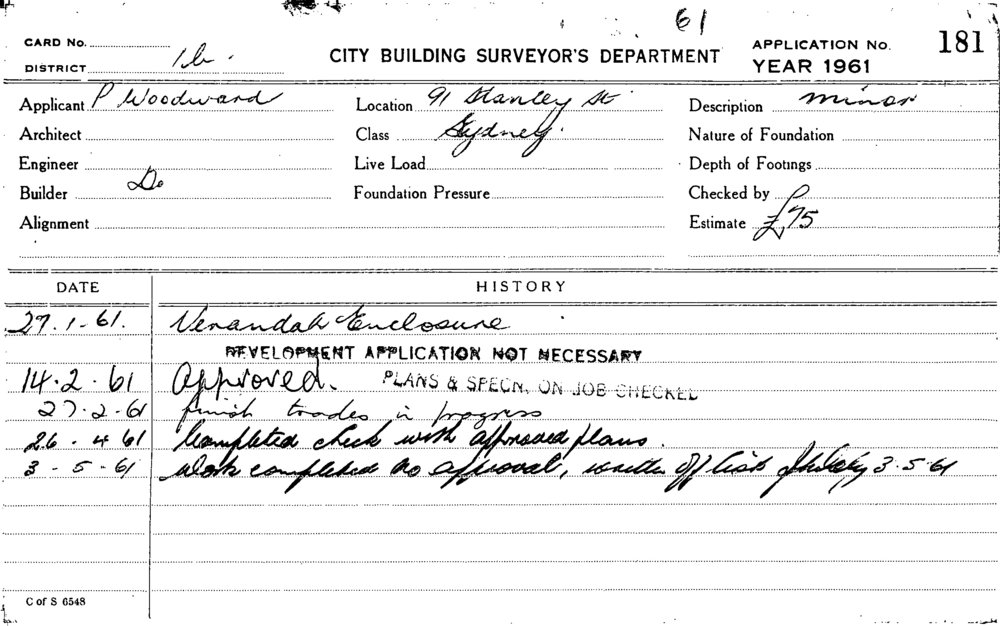 61
CARD No.
CITY BUILDING SURVEYOR'S DEPARTMENT
APPLICATION No. 181
DISTRICT
YEAR 1961
Applicant P Woodward
Location 91 Stanley St
Description minor
Architect
Class Sydney.
Nature of Foundation
Engineer
Live Load
Depth of Footings
Builder Do
Foundation Pressure
Checked by
Alignment
Estimate £75
DATE HISTORY
27.1-61. Verandah Enclosure
DEVELOPMENT APPLICATION NOT NECESSARY
14.2.61 Approved. PLANS & SPECN. ON JOB CHECKED
27.2-61 finish trades in progress
26.4 61 Completed check with approved plans.
3-5-61 Work completed as approval, written off list 3.5.61
C of S 6548